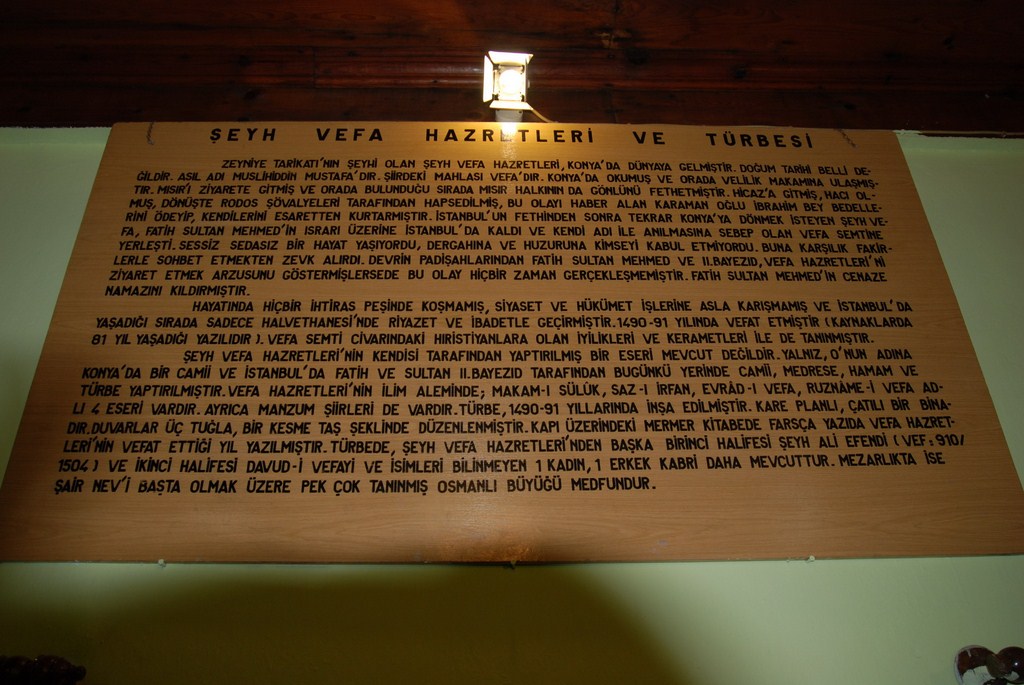 ŞEYH VEFA HAZRETLERİ VE TÜRBESİ
ZEYNİYE TARİKATI'NIN ŞEYHİ OLAN ŞEYH VEFA HAZRETLERİ, KONYA'DA DÜNYAYA GELMİŞTİR. DOĞUM TARİHİ BELLİ DE-
ĞİLDİR. ASIL ADI MUSLİHİDDİN MUSTAFA'DIR. ŞİİRDEKİ MAHLASI VEFA'DIR. KONYA'DA OKUMUŞ VE ORADA VELİLİK MAKAMINA ULAŞMIŞ-
TIR. MISIR'I ZİYARETE GİTMİŞ VE ORADA BULUNDUĞU SIRADA MISIR HALKININ DA GÖNLÜNÜ FETHETMİŞTİR. HİCAZ'A GİTMİŞ, HACI OL-
MUŞ, DÖNÜŞTE RODOS ŞÖVALYELERİ TARAFINDAN HAPSEDİLMİŞ, BU OLAYI HABER ALAN KARAMAN OĞLU İBRAHİM BEY BEDELLE-
RİNİ ÖDEYİP, KENDİLERİNİ ESARETTEN KURTARMIŞTIR. İSTANBUL'UN FETHİNDEN SONRA TEKRAR KONYA'YA DÖNMEK İSTEYEN ŞEYH VE-
FA, FATİH SULTAN MEHMED'İN ISRARI ÜZERİNE İSTANBUL'DA KALDI VE KENDİ ADI İLE ANILMASINA SEBEP OLAN VEFA SEMTİNE
YERLEŞTİ. SESSİZ SEDASIZ BİR HAYAT YAŞIYORDU, DERGAHINA VE HUZURUNA KİMSEYİ KABUL ETMİYORDU. BUNA KARŞILIK FAKİR-
LERLE SOHBET ETMEKTEN ZEVK ALIRDI. DEVRİN PADİŞAHLARINDAN FATİH SULTAN MEHMED VE II.BAYEZID, VEFA HAZRETLERİ'Nİ
ZİYARET ETMEK ARZUSUNU GÖSTERMİŞLERSEDE BU OLAY HİÇBİR ZAMAN GERÇEKLEŞMEMİŞTİR. FATİH SULTAN MEHMED'İN CENAZE
NAMAZINI KILDIRMIŞTIR.
HAYATINDA HİÇBİR İHTİRAS PEŞİNDE KOŞMAMIŞ, SİYASET VE HÜKÜMET İŞLERİNE ASLA KARIŞMAMIŞ VE İSTANBUL'DA
YAŞADIĞI SIRADA SADECE HALVETHANESİ'NDE RİYAZET VE İBADETLE GEÇİRMİŞTİR. 1490-91 YILINDA VEFAT ETMİŞTİR (KAYNAKLARDA
81 YIL YAŞADIĞI YAZILIDIR). VEFA SEMTİ CİVARINDAKİ HIRİSTİYANLARA OLAN İYİLİKLERİ VE KERAMETLERİ İLE DE TANINMIŞTIR.
ŞEYH VEFA HAZRETLERİ'NİN KENDİSİ TARAFINDAN YAPTIRILMIŞ BİR ESERİ MEVCUT DEĞİLDİR. YALNIZ, O'NUN ADINA
KONYA'DA BİR CAMİİ VE İSTANBUL'DA FATİH VE SULTAN II.BAYEZID TARAFINDAN BUGÜNKÜ YERİNDE CAMİİ, MEDRESE, HAMAM VE
TÜRBE YAPTIRILMIŞTIR. VEFA HAZRETLERİ'NİN İLİM ALEMİNDE; MAKAM-I SÜLÜK, SAZ-I İRFAN, EVRÂD-I VEFA, RUZNÂME-İ VEFA AD-
LI 4 ESERİ VARDIR. AYRICA MANZUM ŞİİRLERİ DE VARDIR. TÜRBE, 1490-91 YILLARINDA İNŞA EDİLMİŞTİR. KARE PLANLI, ÇATILI BİR BİNA-
DIR. DUVARLAR ÜÇ TUĞLA, BİR KESME TAŞ ŞEKLİNDE DÜZENLENMİŞTİR. KAPI ÜZERİNDEKİ MERMER KİTABEDE FARSÇA YAZIDA VEFA HAZRET-
LERİ'NİN VEFAT ETTİĞİ YIL YAZILMIŞTIR. TÜRBEDE, ŞEYH VEFA HAZRETLERİ'NDEN BAŞKA BİRİNCİ HALİFESİ ŞEYH ALİ EFENDİ (VEF: 910/
1504) VE İKİNCİ HALİFESİ DAVUD-İ VEFAYİ VE İSİMLERİ BİLİNMEYEN 1 KADIN, 1 ERKEK KABRİ DAHA MEVCUTTUR. MEZARLIKTA İSE
ŞAİR NEV'İ BAŞTA OLMAK ÜZERE PEK ÇOK TANINMIŞ OSMANLI BÜYÜĞÜ MEDFUNDUR.